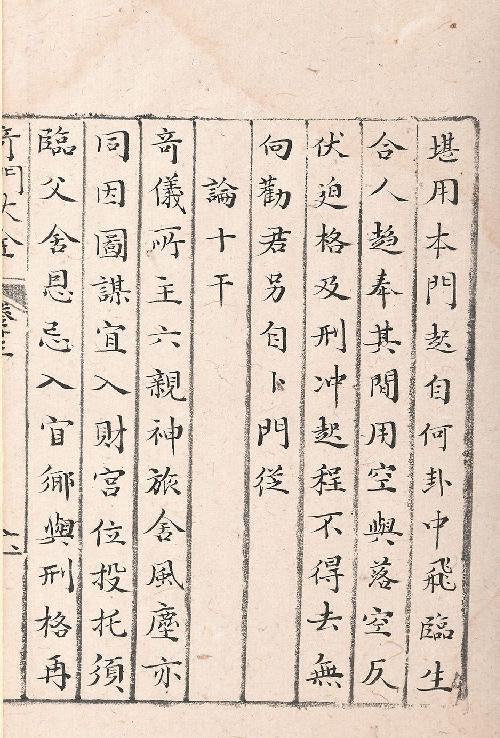 堪用本門起自何卦中飛臨生
合人趋奉其間用空與落空反
伏迫格及刑冲起程不得去無
向勸君另自卜門從
論十干
奇儀所主六親神旅舍風塵亦
同因圖謀宜入財宮位投托須
臨父舍恩忌入官鄉與刑格再
奇門大全